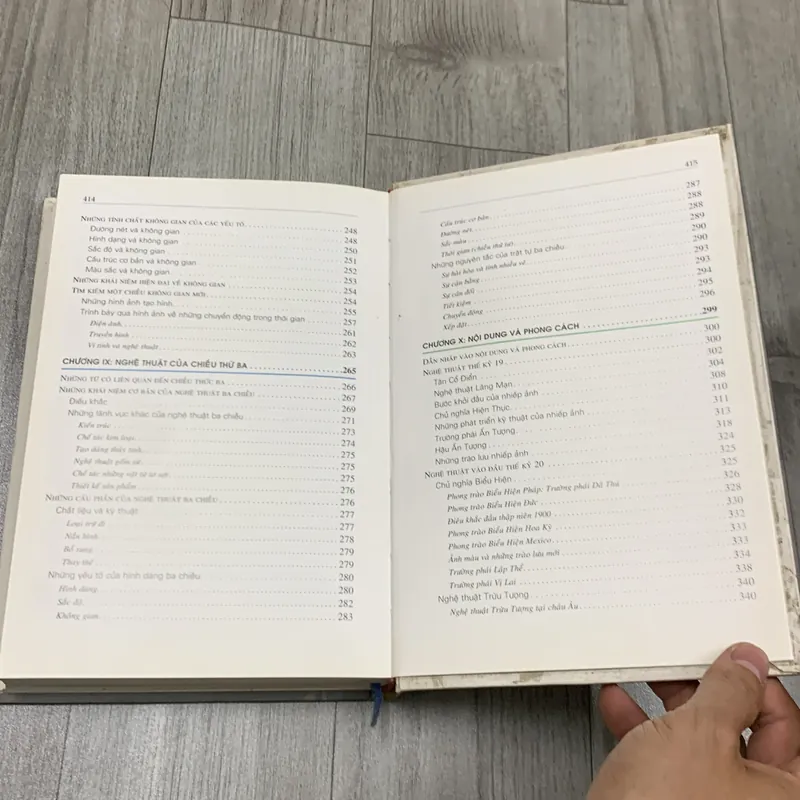 414
NHỮNG TÍNH CHẤT KHÔNG GIAN CỦA CÁC YẾU TỐ 248
Đường nét và không gian 248
Hình dạng và không gian 250
Sắc độ và không gian 251
Cấu trúc cơ bản và không gian 252
Màu sắc và không gian 253
NHỮNG KHÁI NIỆM HIỆN ĐẠI VỀ KHÔNG GIAN 254
TÌM KIẾM MỘT CHIỀU KHÔNG GIAN MỚI 254
Những hình ảnh tạo hình 255
Trình bày qua hình ảnh về những chuyển động trong thời gian 257
Điện ảnh 261
Truyền hình 262
Vi tính và nghệ thuật 263
CHƯƠNG IX: NGHỆ THUẬT CỦA CHIỀU THỨ BA 265
NHỮNG TỪ CÓ LIÊN QUAN ĐẾN CHIỀU THỨC BA 266
NHỮNG KHÁI NIỆM CƠ BẢN CỦA NGHỆ THUẬT BA CHIỀU 267
Điêu khắc 269
Những lãnh vực khác của nghệ thuật ba chiều 271
Kiến trúc 273
Chế tác kim loại 274
Tạo dáng thủy tinh 275
Nghệ thuật gốm sứ 275
Chế tác những vật từ sơ sợi 275
Thiết kế sản phẩm 276
NHỮNG CẤU PHẦN CỦA NGHỆ THUẬT BA CHIỀU 276
Chất liệu và kỹ thuật 277
Loại trừ đi 277
Nắn hình 278
Bổ sung 279
Thay thế 279
Những yếu tố của hình dạng ba chiều 280
Hình dạng 280
Sắc độ 282
Không gian 283
415
Cấu trúc cơ bản 287
Đường nét 288
Sắc màu 288
Thời gian (chiều thứ tư) 289
Những nguyên tắc của trật tự ba chiều 290
Sự hài hòa và tính nhiều vẻ 290
Sự cân bằng 293
Sự cân đối 293
Tiết kiệm 294
Chuyển động 295
Xếp đặt 296
CHƯƠNG X: NỘI DUNG VÀ PHONG CÁCH 299
DẪN NHẬP VÀO NỘI DUNG VÀ PHONG CÁCH 300
NGHỆ THUẬT THẾ KỶ 19 300
Tân Cổ Điển 302
Nghệ thuật Lãng Mạn 304
Bước khởi đầu của nhiếp ảnh 308
Chủ nghĩa Hiện Thực 310
Những phát triển kỹ thuật của nhiếp ảnh 311
Trường phái Ấn Tượng 313
Hậu Ấn Tượng 318
Những trào lưu nhiếp ảnh 324
NGHỆ THUẬT VÀO ĐẦU THẾ KỶ 20 325
Chủ nghĩa Biểu Hiện 325
Phong trào Biểu Hiện Pháp: Trường phái Dã Thú 326
Phong trào Biểu Hiện Đức 328
Điêu khắc đầu thập niên 1900 330
Phong trào Biểu Hiện Hoa Kỳ 332
Phong trào Biểu Hiện Mexico 333
Ảnh màu và những trào lưu mới 333
Trường phái Lập Thể 334
Trường phái Vị Lai 338
Nghệ thuật Trừu Tượng 340
Nghệ thuật Trừu Tượng tại châu Âu 340